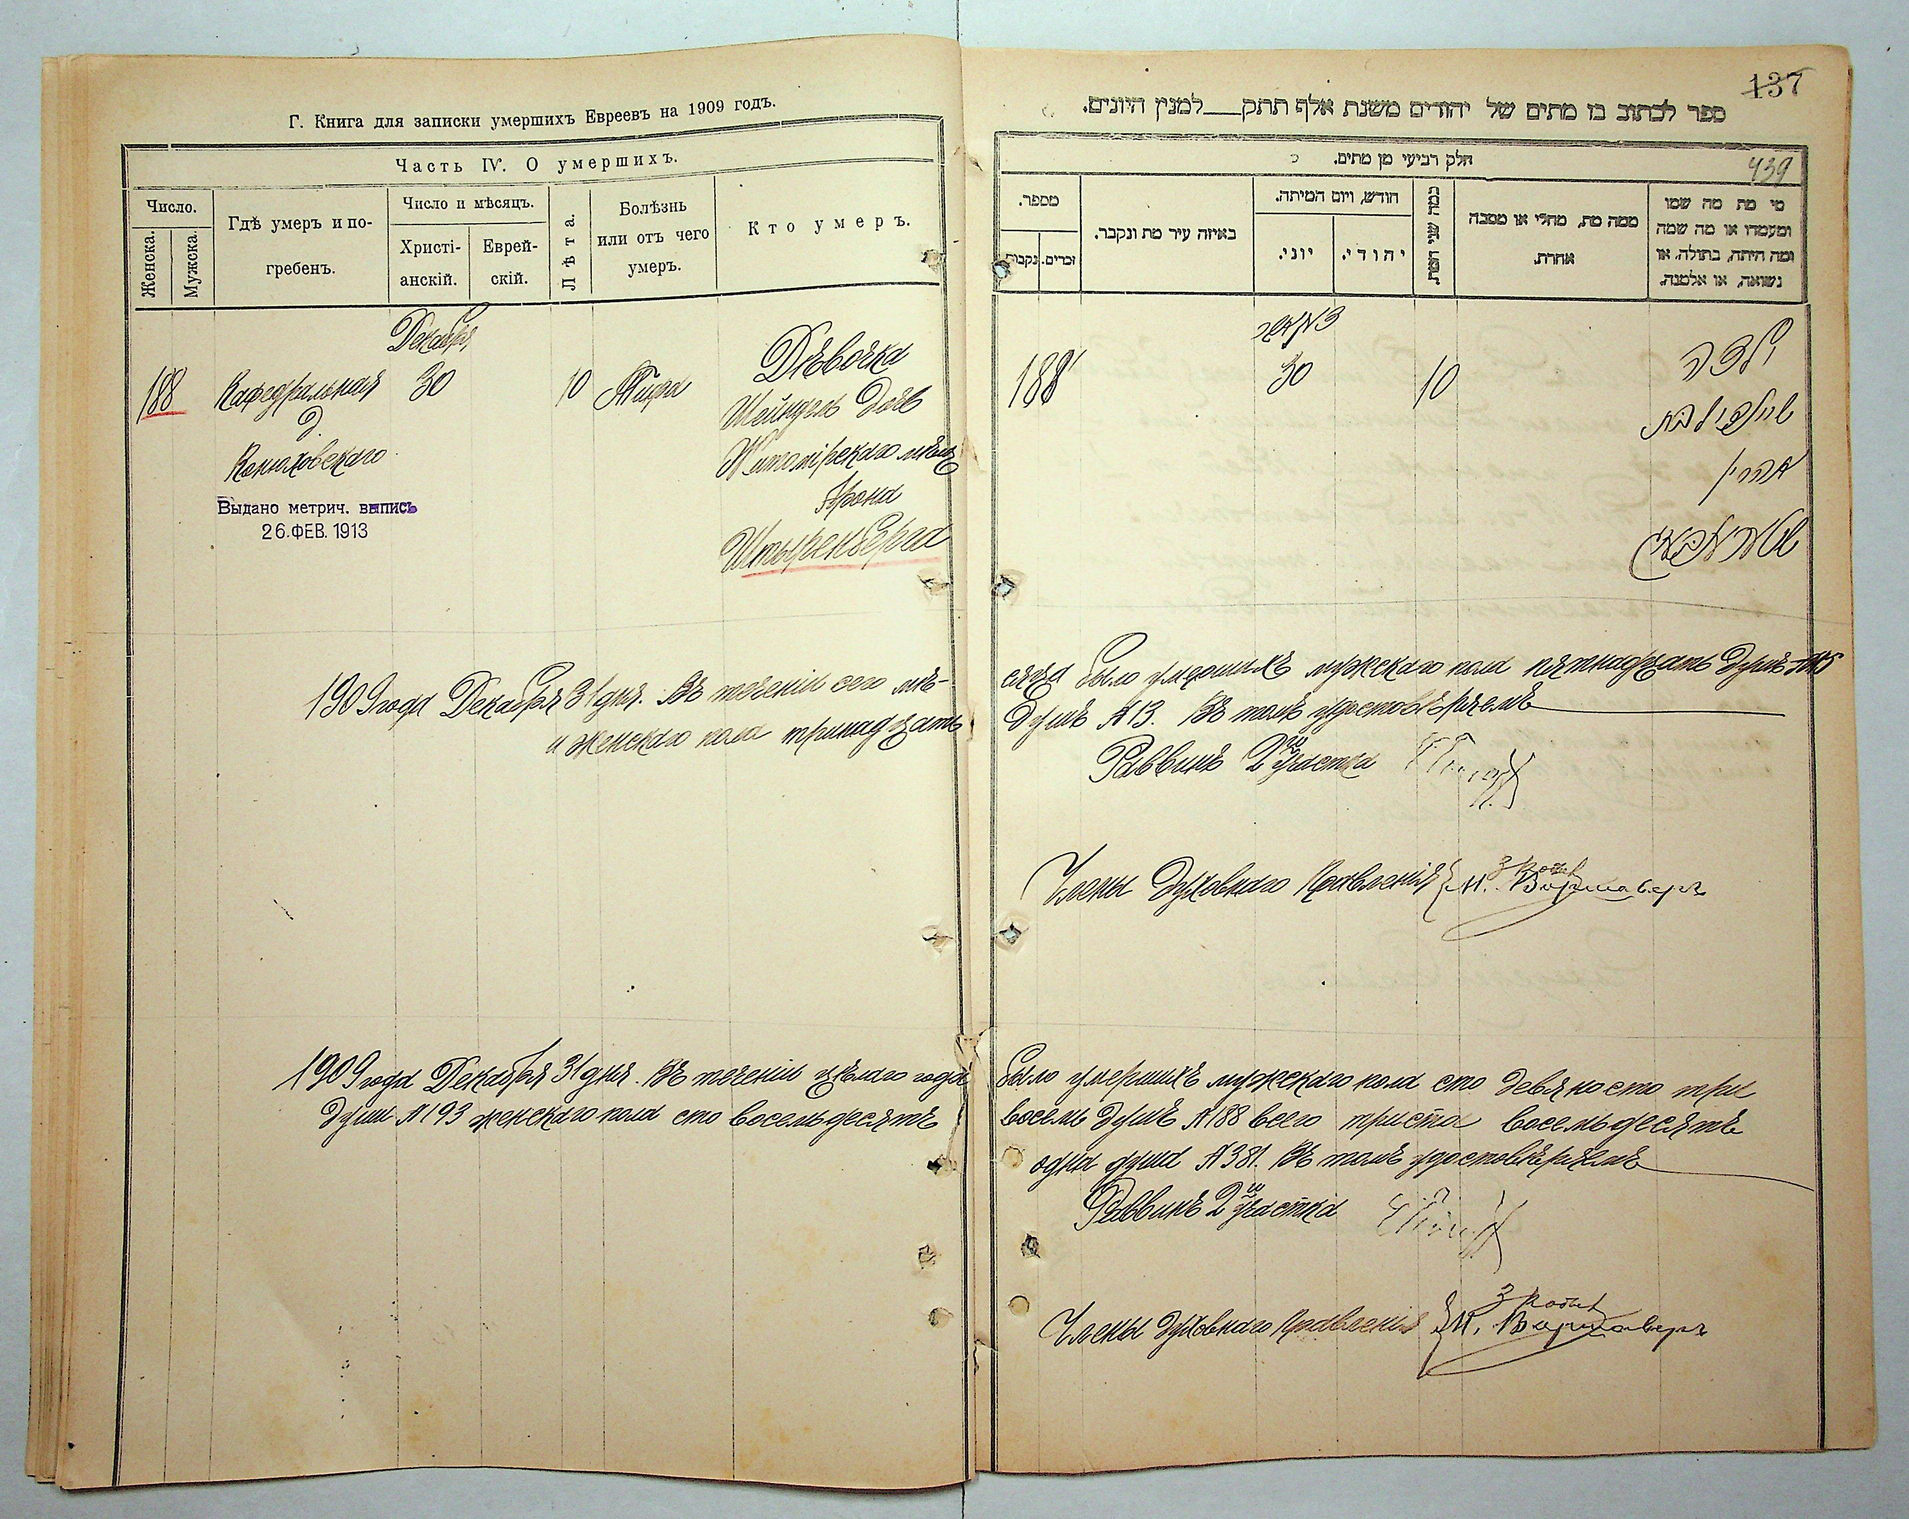 Г. Книга для записки умершихъ Евреевъ на 1909 годъ.
Часть IV. О умершихъ.
Число.
Женска.
Мужска.
Гдѣ умеръ и по-
гребенъ.
Число и мѣсяцъ.
Христі-
анскій.
Еврей-
скій.
Лѣта.
Болѣзнь
или отъ чего
умеръ.
Кто умеръ.
Декабрь
188
Кафедральная
д.
30
10
Дѣвочка
Шейндль дочь
Житомірскаго мѣщ
Арона
Штыренберга
Выдано метрич. выпись
26.ФЕВ.1913
1909 года Декабря 31 дня. Въ теченіи сего мѣ-
и женскаго пола тринадцать
1909 года Декабря 31 дня. Въ теченіи цѣлаго года
души №193 женскаго пола сто восемьдесятъ
137
ספר לכתוב בו מתים של יהודים משנת אלף תתק למנין היונים.
439
חלק רביעי מן מתים.
מספר.
נקבות
זכרים.
באיזה עיר מת ונקבר.
חודש, ויום המיתה.
יוני.
יהודי.
כמה שני המת.
ממה מת, מחלי או מסבה
אחרת.
מי מת מה שמו
ומעמדו או מה שמה
ומה היתה, בתולה. או
נשואה, או אלמנה.
188
30
10
ילדה
אהרן
сяца было умершихъ мужскаго пола пятнадцать душъ №15
душъ №13. Въ томъ удостовѣряемъ
Раввинъ 2го участка
Члены Духовнаго Правленія
М. Варшаверъ
было умершихъ мужскаго пола сто девяносто три
восемь душъ №188 всего триста восемьдесятъ
одна душа №381. Въ томъ удостовѣряемъ
Раввинъ 2го участка
Члены Духовнаго Правленія
М. Варшаверъ